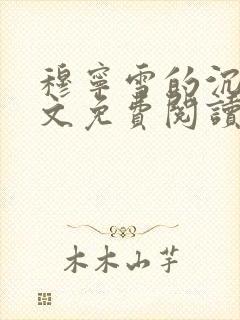 穆寧雪的沉
文免費閱讀
木木山芋